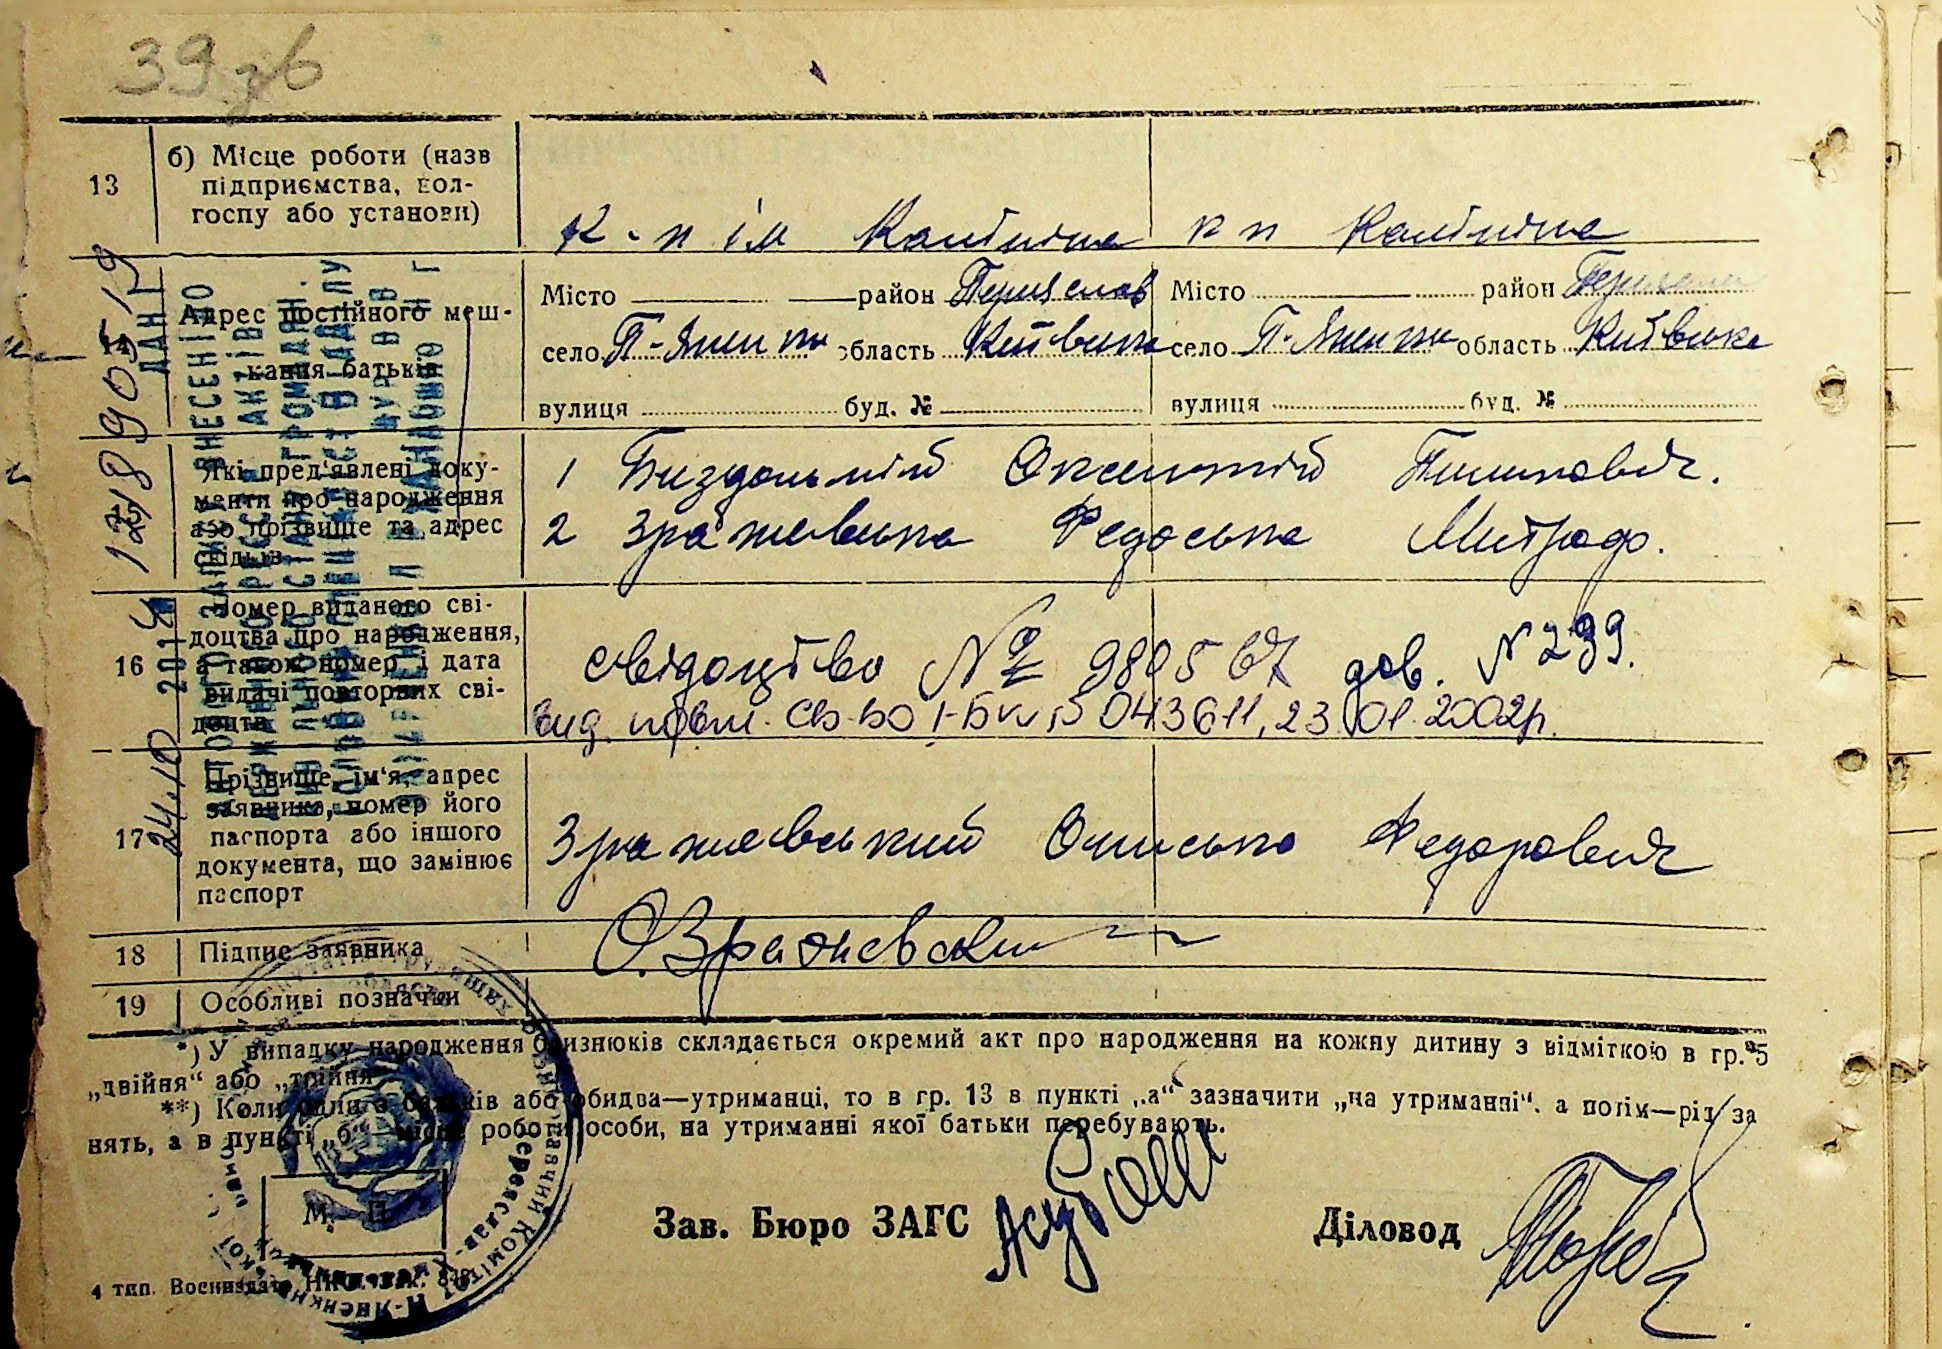 39 зв
13
б) Місце роботи (назв
підприємства, кол-
госпу або установи)
к-п ім Калініна
кп Калініна
14
Адрес постійного меш-
кання батьків
Місто район Переяслав
село П-Яненки область Київська
вулиця буд. №
Місто район Переяслав
село П-Яненки область Київська
вулиця буд. №
Які пред'явлені доку-
менти про народження
або прізвище та адрес
свідків
1 Оксентій
2 Зражевська Федоська Митроф.
16
Номер виданого сві-
доцтва про народження,
а також номер і дата
видачі повторних сві-
доцтв
свідоцтво № 980567 дов. № 239.
вид. повт. св-во І-БК № 043611, 23.01.2002р.
17
Прізвище, ім'я, адрес
заявника, номер його
паспорта або іншого
документа, що замінює
паспорт
Зражевський Федорович
18
Підпис заявника
О. Зражевски
19
Особливі позначки
*) У випадку народження близнюків складається окремий акт про народження на кожну дитину з відміткою в гр. 5
„двійня“ або „трійня“
**) Коли один з батьків або обидва—утриманці, то в гр. 13 в пункті „а“ зазначити „на утриманні“, а потім—рід за
нять, а в пункті „б“ місце роботи особи, на утриманні якої батьки перебувають.
М. П.
Зав. Бюро ЗАГС
Діловод
24.10 2014